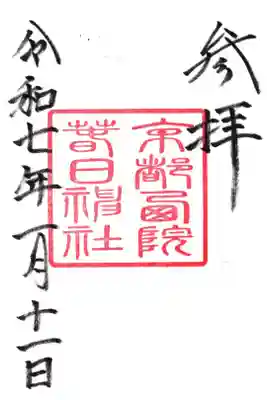 参拝
京都西院
春日神社
令和七年一月十一日